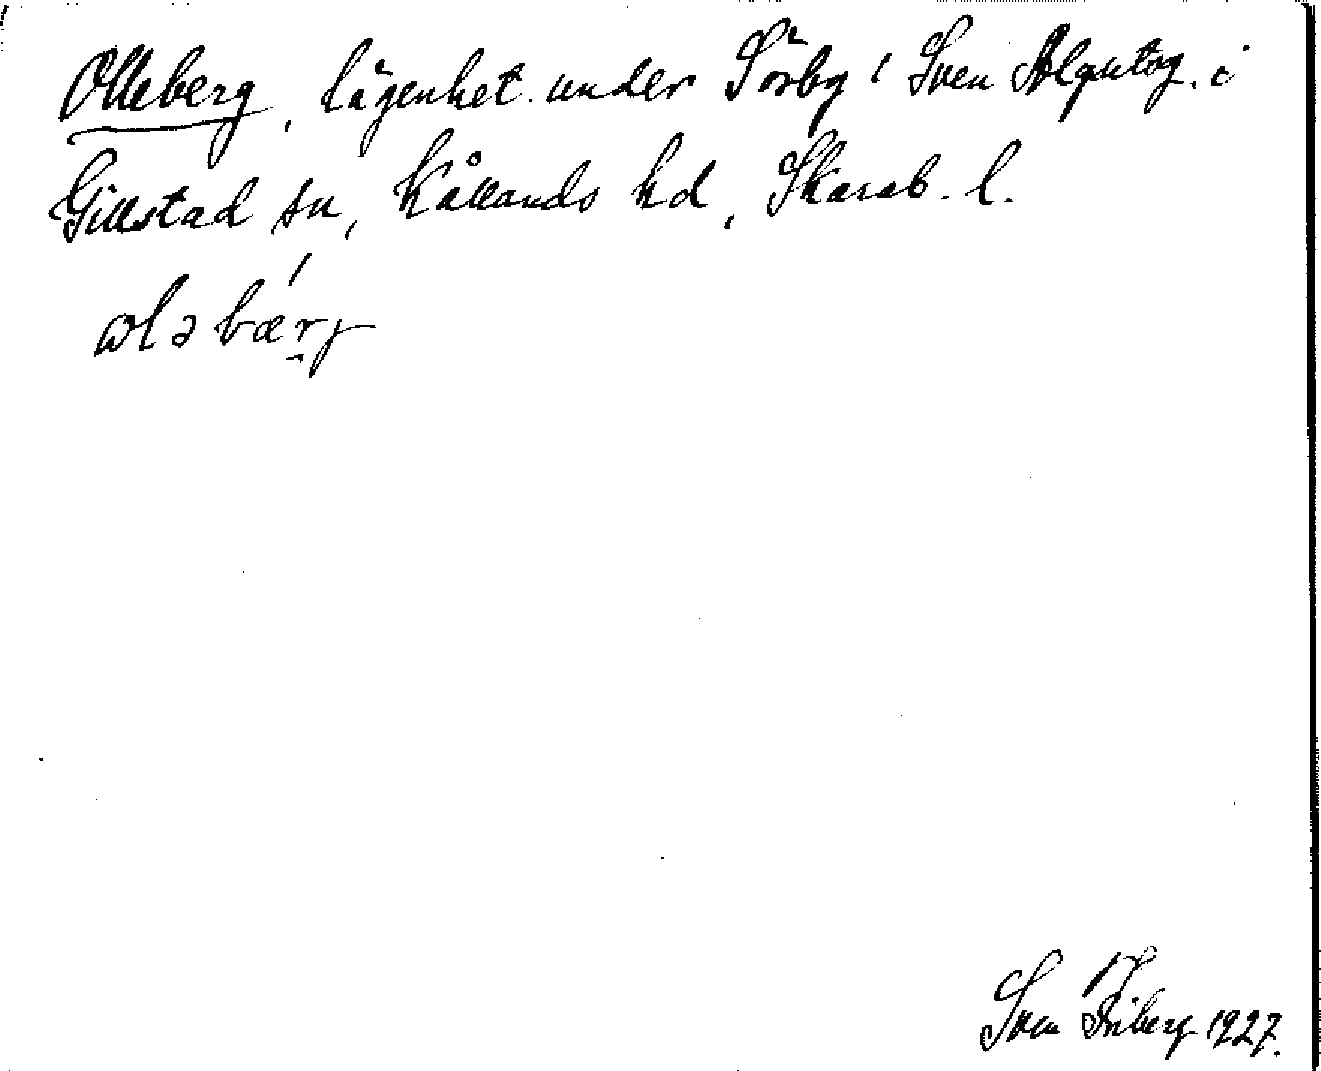 Olleberg, lägenhet under Sörby, Sven Algutsg. i
Gillstad sn, Kållands hd, Skarab. l.
ɷlə bærj
Sven Friberg 1927.